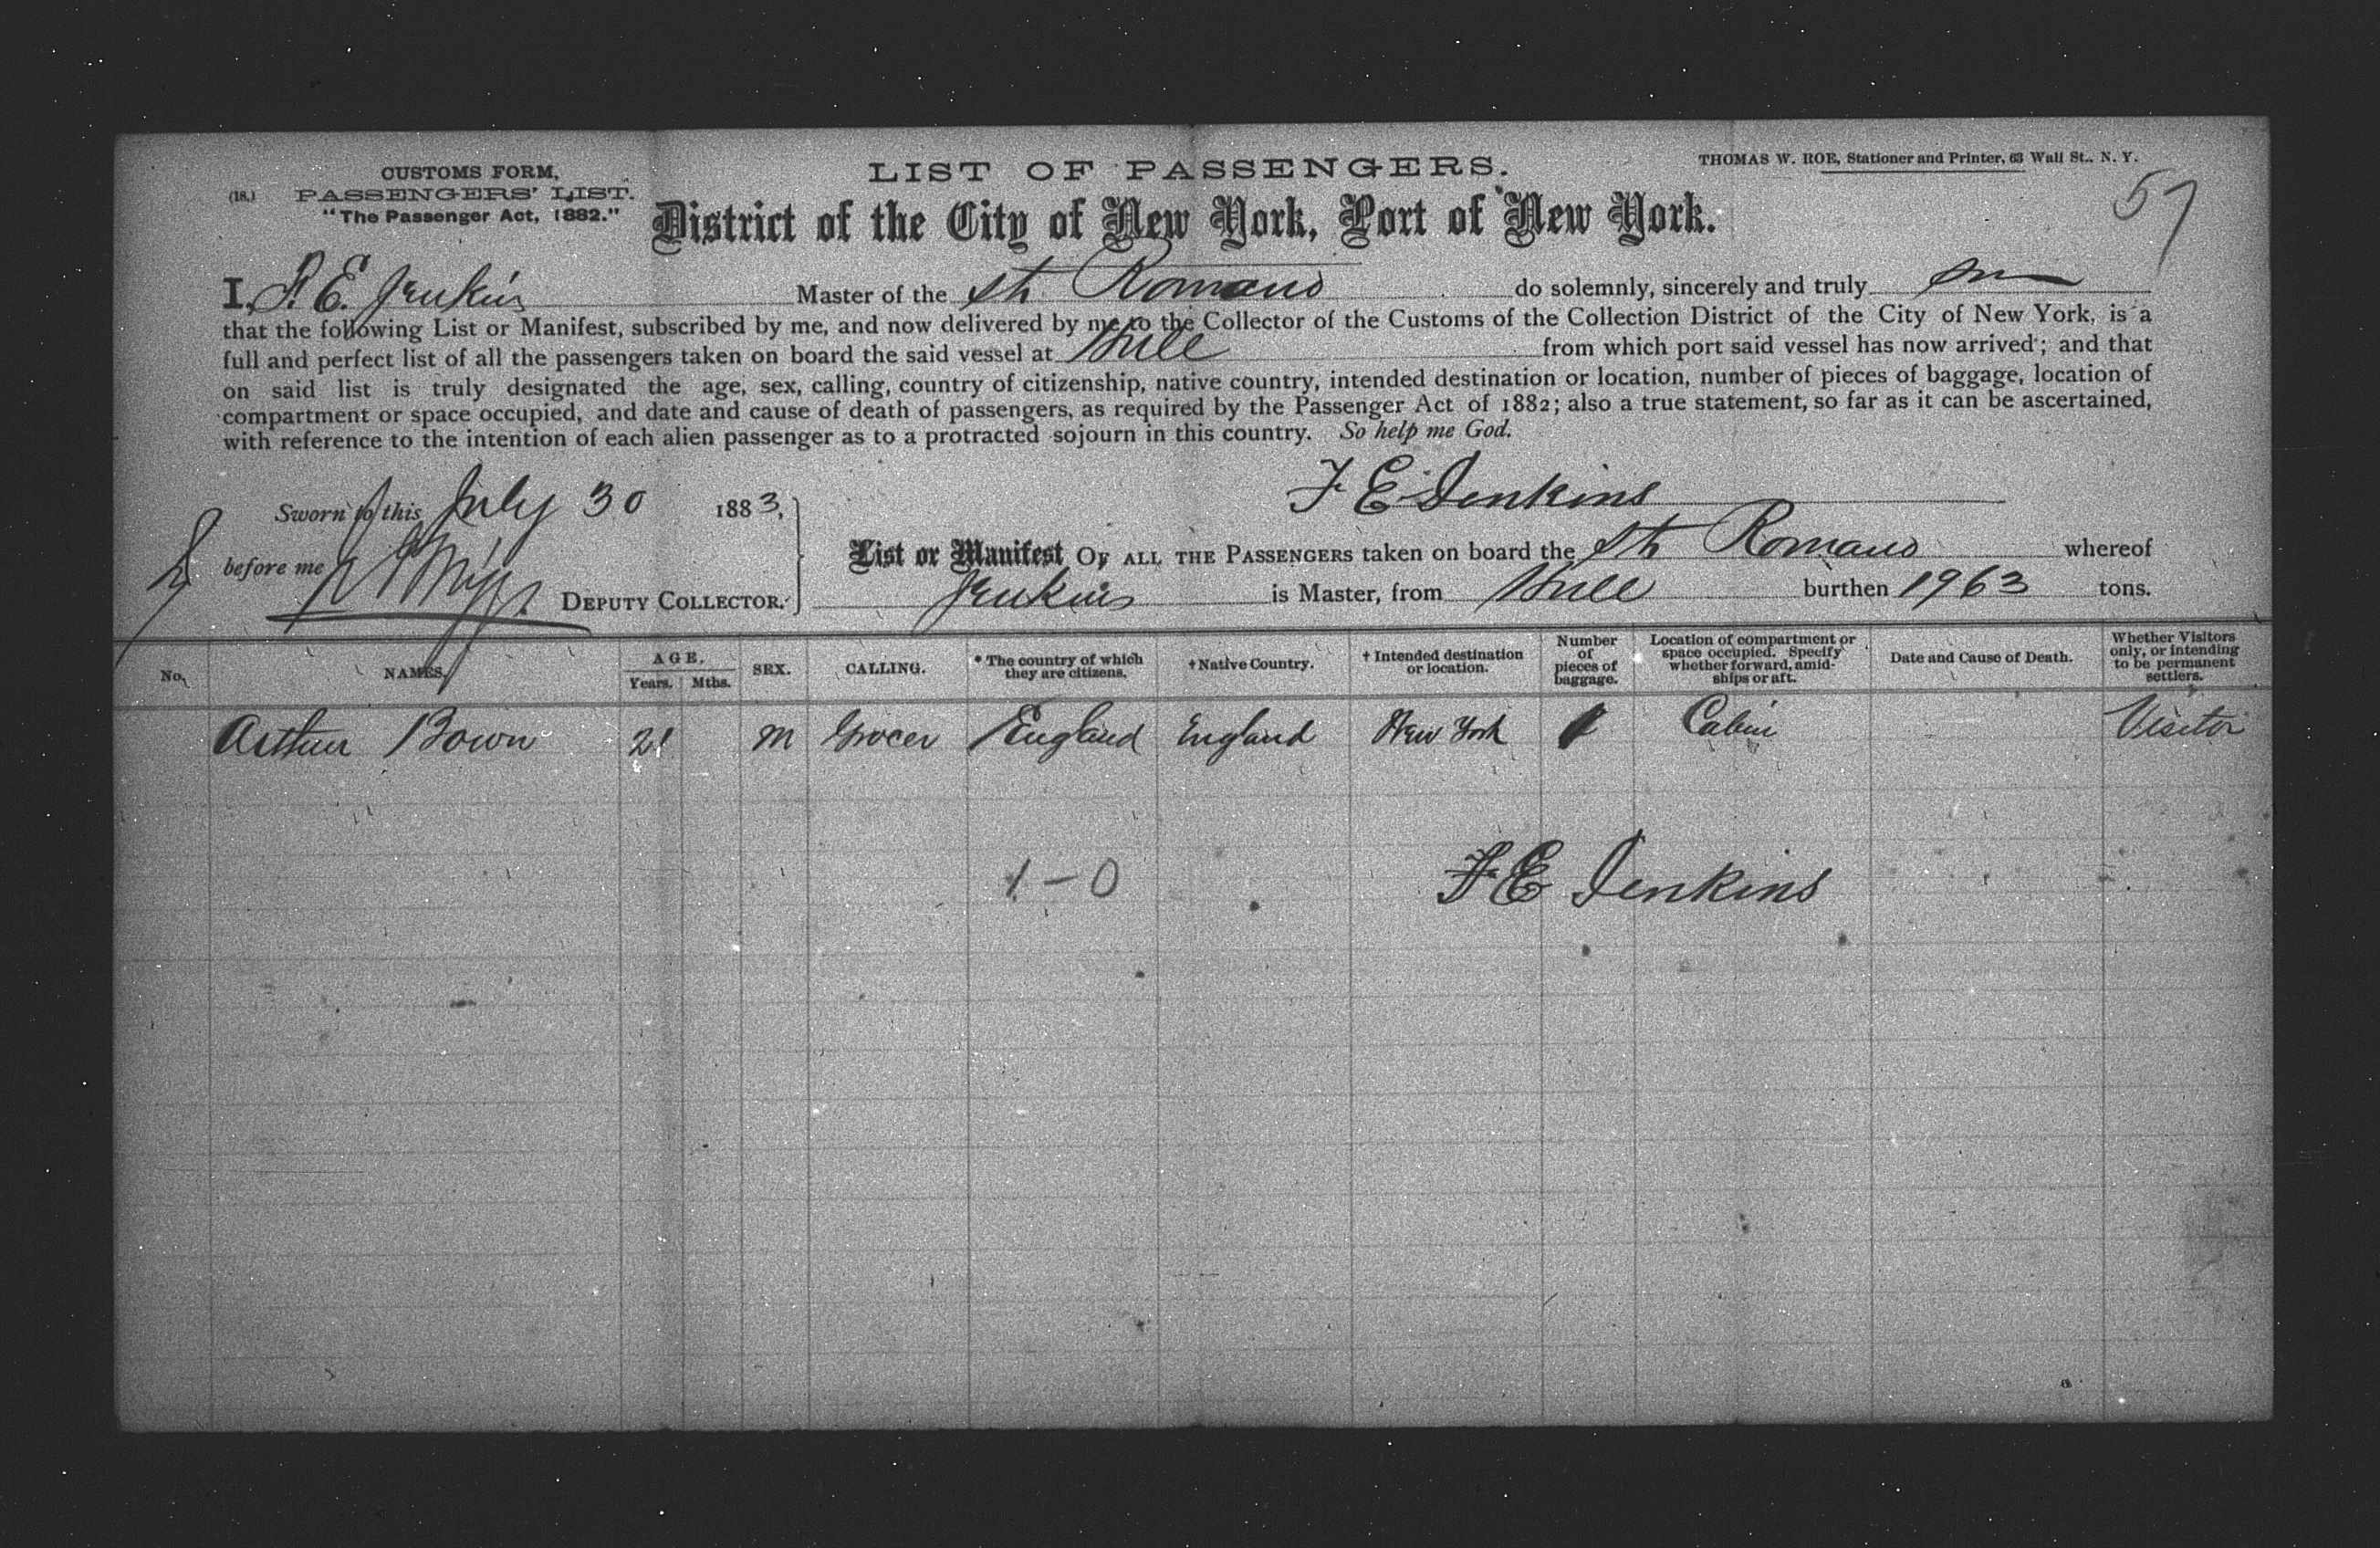 CUSTOMS FORM,
(18.) PASSENGERS' LIST.
"The Passenger Act, 1882."
LIST OF PASSENGERS.
THOMAS W. ROE, Stationer and Printer, 63 Wall St., N. Y.
57
District of the City of New York, Port of New York.
I, F. E. Jenkins Master of the Str Romano do solemnly, sincerely and truly
that the following List or Manifest, subscribed by me, and now delivered by me to the Collector of the Customs of the Collection District of the City of New York, is a
full and perfect list of all the passengers taken on board the said vessel at Hull from which port said vessel has now arrived; and that
on said list is truly designated the age, sex, calling, country of citizenship, native country, intended destination or location, number of pieces of baggage, location of
compartment or space occupied, and date and cause of death of passengers, as required by the Passenger Act of 1882; also a true statement, so far as it can be ascertained,
with reference to the intention of each alien passenger as to a protracted sojourn in this country. So help me God.
F E Jenkins
Sworn to this July 30 1883,
before me DEPUTY COLLECTOR.
List or Manifest OF ALL THE PASSENGERS taken on board the Str Romano whereof
Jenkins is Master, from Hull burthen 1963 tons.
No. NAMES. AGE. Years. Mths. SEX. CALLING. * The country of which they are citizens. † Native Country. † Intended destination or location. Number of pieces of baggage. Location of compartment or space occupied. Specify whether forward, amidships or aft. Date and Cause of Death. Whether Visitors only, or intending to be permanent settlers.
Arthur Bown 21 M Grocer England England New York 1 Cabin Visitor
1 - 0
F E Jenkins